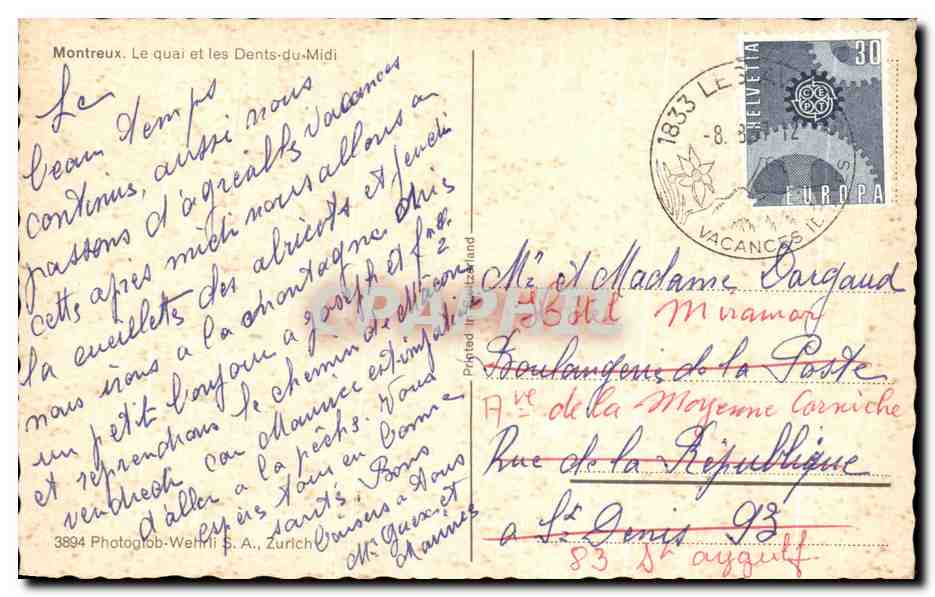 Montreux. Le quai et les Dents-du-Midi
Le
beau temps
continus, aussi nous
passons d'agreables vacances
cette après midi nous allons a
la cueillets des abricots et jeudi
nous irons a la montagne, puis
un petit bonjour a joseph et
et reprendrons le chemin de Mâcon
vendredi car Maurice est impatient
d'aller a la pêche. Vous
espère tous en bonne
santé. Bons
baisers a tous
Mr et
3894 Photoglob-Wehrli S. A., Zurich
Printed in Switzerland
1833 LE
-8. 8. 12
VACANCES
HELVETIA
30
CEPT
EUROPA
Mr et Madame Dargaud
Hotel Miramar
Boulangerie de la Poste
Ave de la Moyenne Corniche
Rue de la République
a St Denis 93
83 St aygulf
CPAPHIL